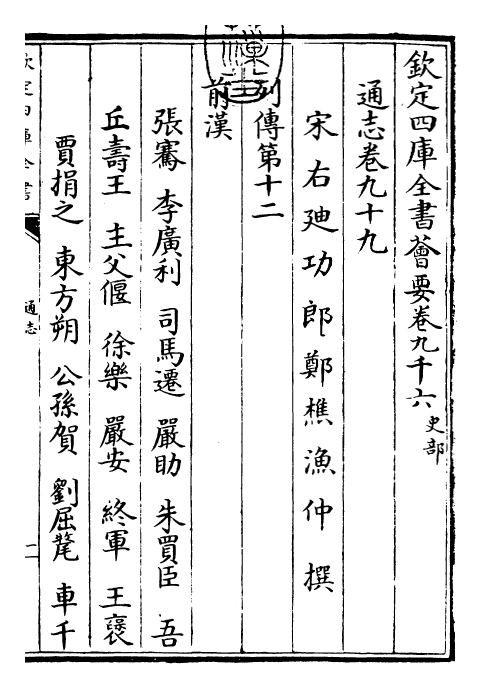 欽定四庫全書薈要卷九千六 史部
通志卷九十九
宋右迪功郎鄭樵漁仲撰
列傳第十二
前漢
張騫 李廣利 司馬遷 嚴助 朱買臣 吾
丘壽王 主父偃 徐樂 嚴安 終軍 王襃
賈捐之 東方朔 公孫賀 劉屈氂 車千
欽定四庫全書
通志
一